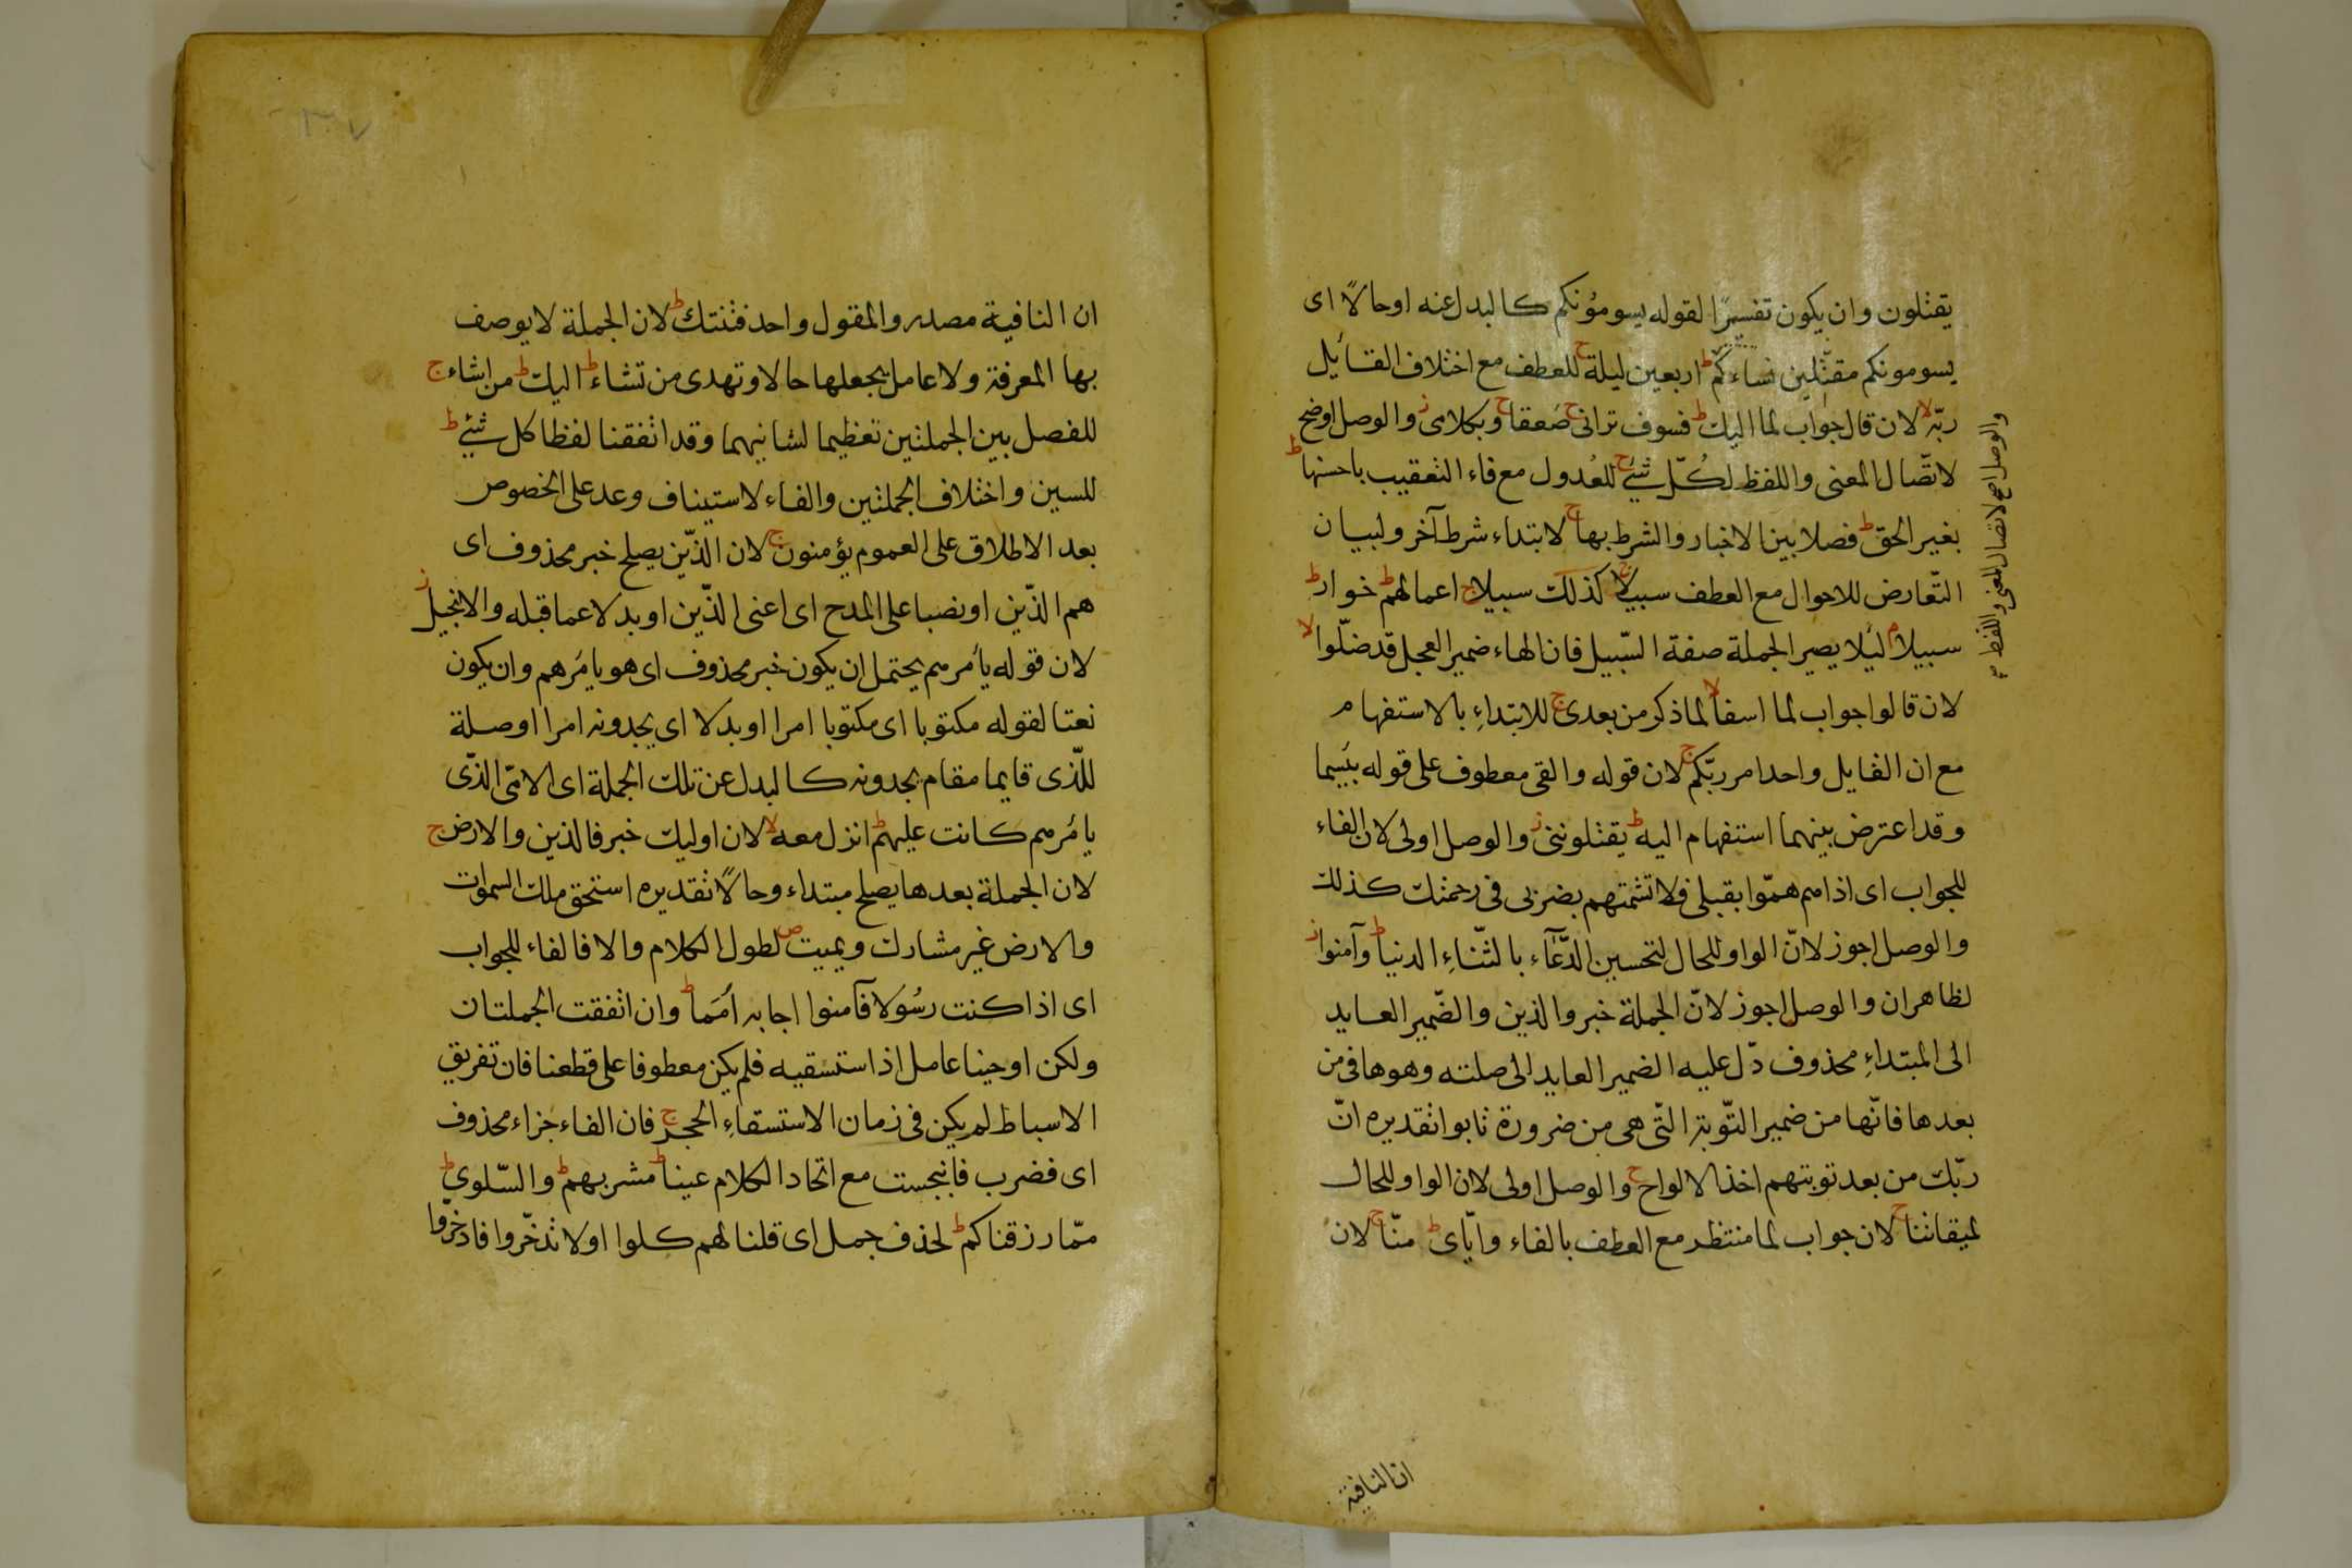 يقتلون وان يكون تفسيرًا لقوله يسومونكم كالبدل عنه او حالاً اى
يسومونكم مقتّلين نساءكم ط اربعين ليلة ج للعطف مع اختلاف القائل
ربّه لا لان قال جواب لما اليك ط فسوف ترانى ج صعقا ج وبكلامى ز والوصل اوضح
لاتّصال المعنى واللفظ لكلّ شئ ج للعُدول مع فاء التعقيب باحسنها ط
بغير الحق ط فصلا بين الاخبار والشرط بها ج لابتداء شرط آخر ولبيان
التّعارض للاحوال مع العطف سبيلا ج كذلك سبيلا ج اعمالهم ط خوار ط
سبيلا م ليلا يصير الجملة صفة السّبيل فان الهاء ضمير العجل قد ضلّوا لا
لان قالوا جواب لما اسفا لا لما ذكر من بعدى ج للابتداءِ بالاستفهام
مع ان القايل واحد امر ربّكم ج لان قوله والقى معطوف على قوله بئسما
وقد اعترض بينهما استفهام اليه ط يقتلوننى ز والوصل اولى لان الفاء
للجواب اى اذا هم همّوا بقبلى فلا تشمتهم بضربى فى رحمتك كذلك
والوصل اجوز لانّ الواو للحال لتحسين الدّعاء بالثّناءِ الدنيا ط وآمنوا ز
لظاهر ان والوصل اجوز لانّ الجملة خبر والذين والضّمير العايد
الى المبتداءِ محذوف دّل عليه الضمير العايد الى صلته وهو ها فى من
بعدها فانّها من ضمير التّوبة التّى هى من ضرورة تابوا تقديره انّ
ربّك من بعد توبتهم اخذ الالواح ج والوصل اولى لان الواو للحال
لميقاتنا ج لان جواب لما منتظر مع العطف بالفاء وايّاى ط منّا ج لان
والوصل اصح لاتصال المعنى واللفظ
ان النافية
ان النافية مصدر والمقول واحد فتنتك ط لان الجملة لا يوصف
بها المعرفة ولا عامل يجعلها حالا وتهدى من تشاء ط اليك ط من اشاء ج
للفصل بين الجملتين تعظيما لشانيهما وقد اتفقنا لفظا كل شئ ط
للسين واختلاف الجملتين والفاء لاستيناف وعد على الخصوص
بعد الاطلاق على العموم يؤمنون ج لان الذّين يصلح خبر محذوف اى
هم الذّين او نصبا على المدح اى اعنى الذّين او بدلا عما قبله والانجيل ز
لان قوله يأمرهم يحتمل ان يكون خبر محذوف اى هو يامرهم وان يكون
نعتا لقوله مكتوبا اى مكتوبا امرا او بدلا اى يجدونه امرا او صلة
للّذى قايما مقام يجدونه كالبدل عن تلك الجملة اى الامّى الذّى
يامرهم كانت عليهم ط انزل معه لا لان اوليك خبر فالذين والارض ج
لان الجملة بعدها يصلح مبتداء وحالاً تقديره استحق ملك السموات
والارض غير مشارك ويميت ص لطول الكلام والا فالفاء للجواب
اى اذا كنت رسُولا فآمنوا اجابه أمَما ط وان اتفقت الجملتان
ولكن اوحينا عامل اذا ستسقيه فلم يكن معطوفا على قطعنا فان تفريق
الاسباط لم يكن فى زمان الاستسقاءِ الحجر ج فان الفاء جزاء محذوف
اى فضرب فانبجست مع اتحاد الكلام عينا ط مشربهم ط والسّلوى ط
ممّا رزقناكم ط لحذف جمل اى قلنا لهم كلوا او لا تدخّروا فادخرّوا